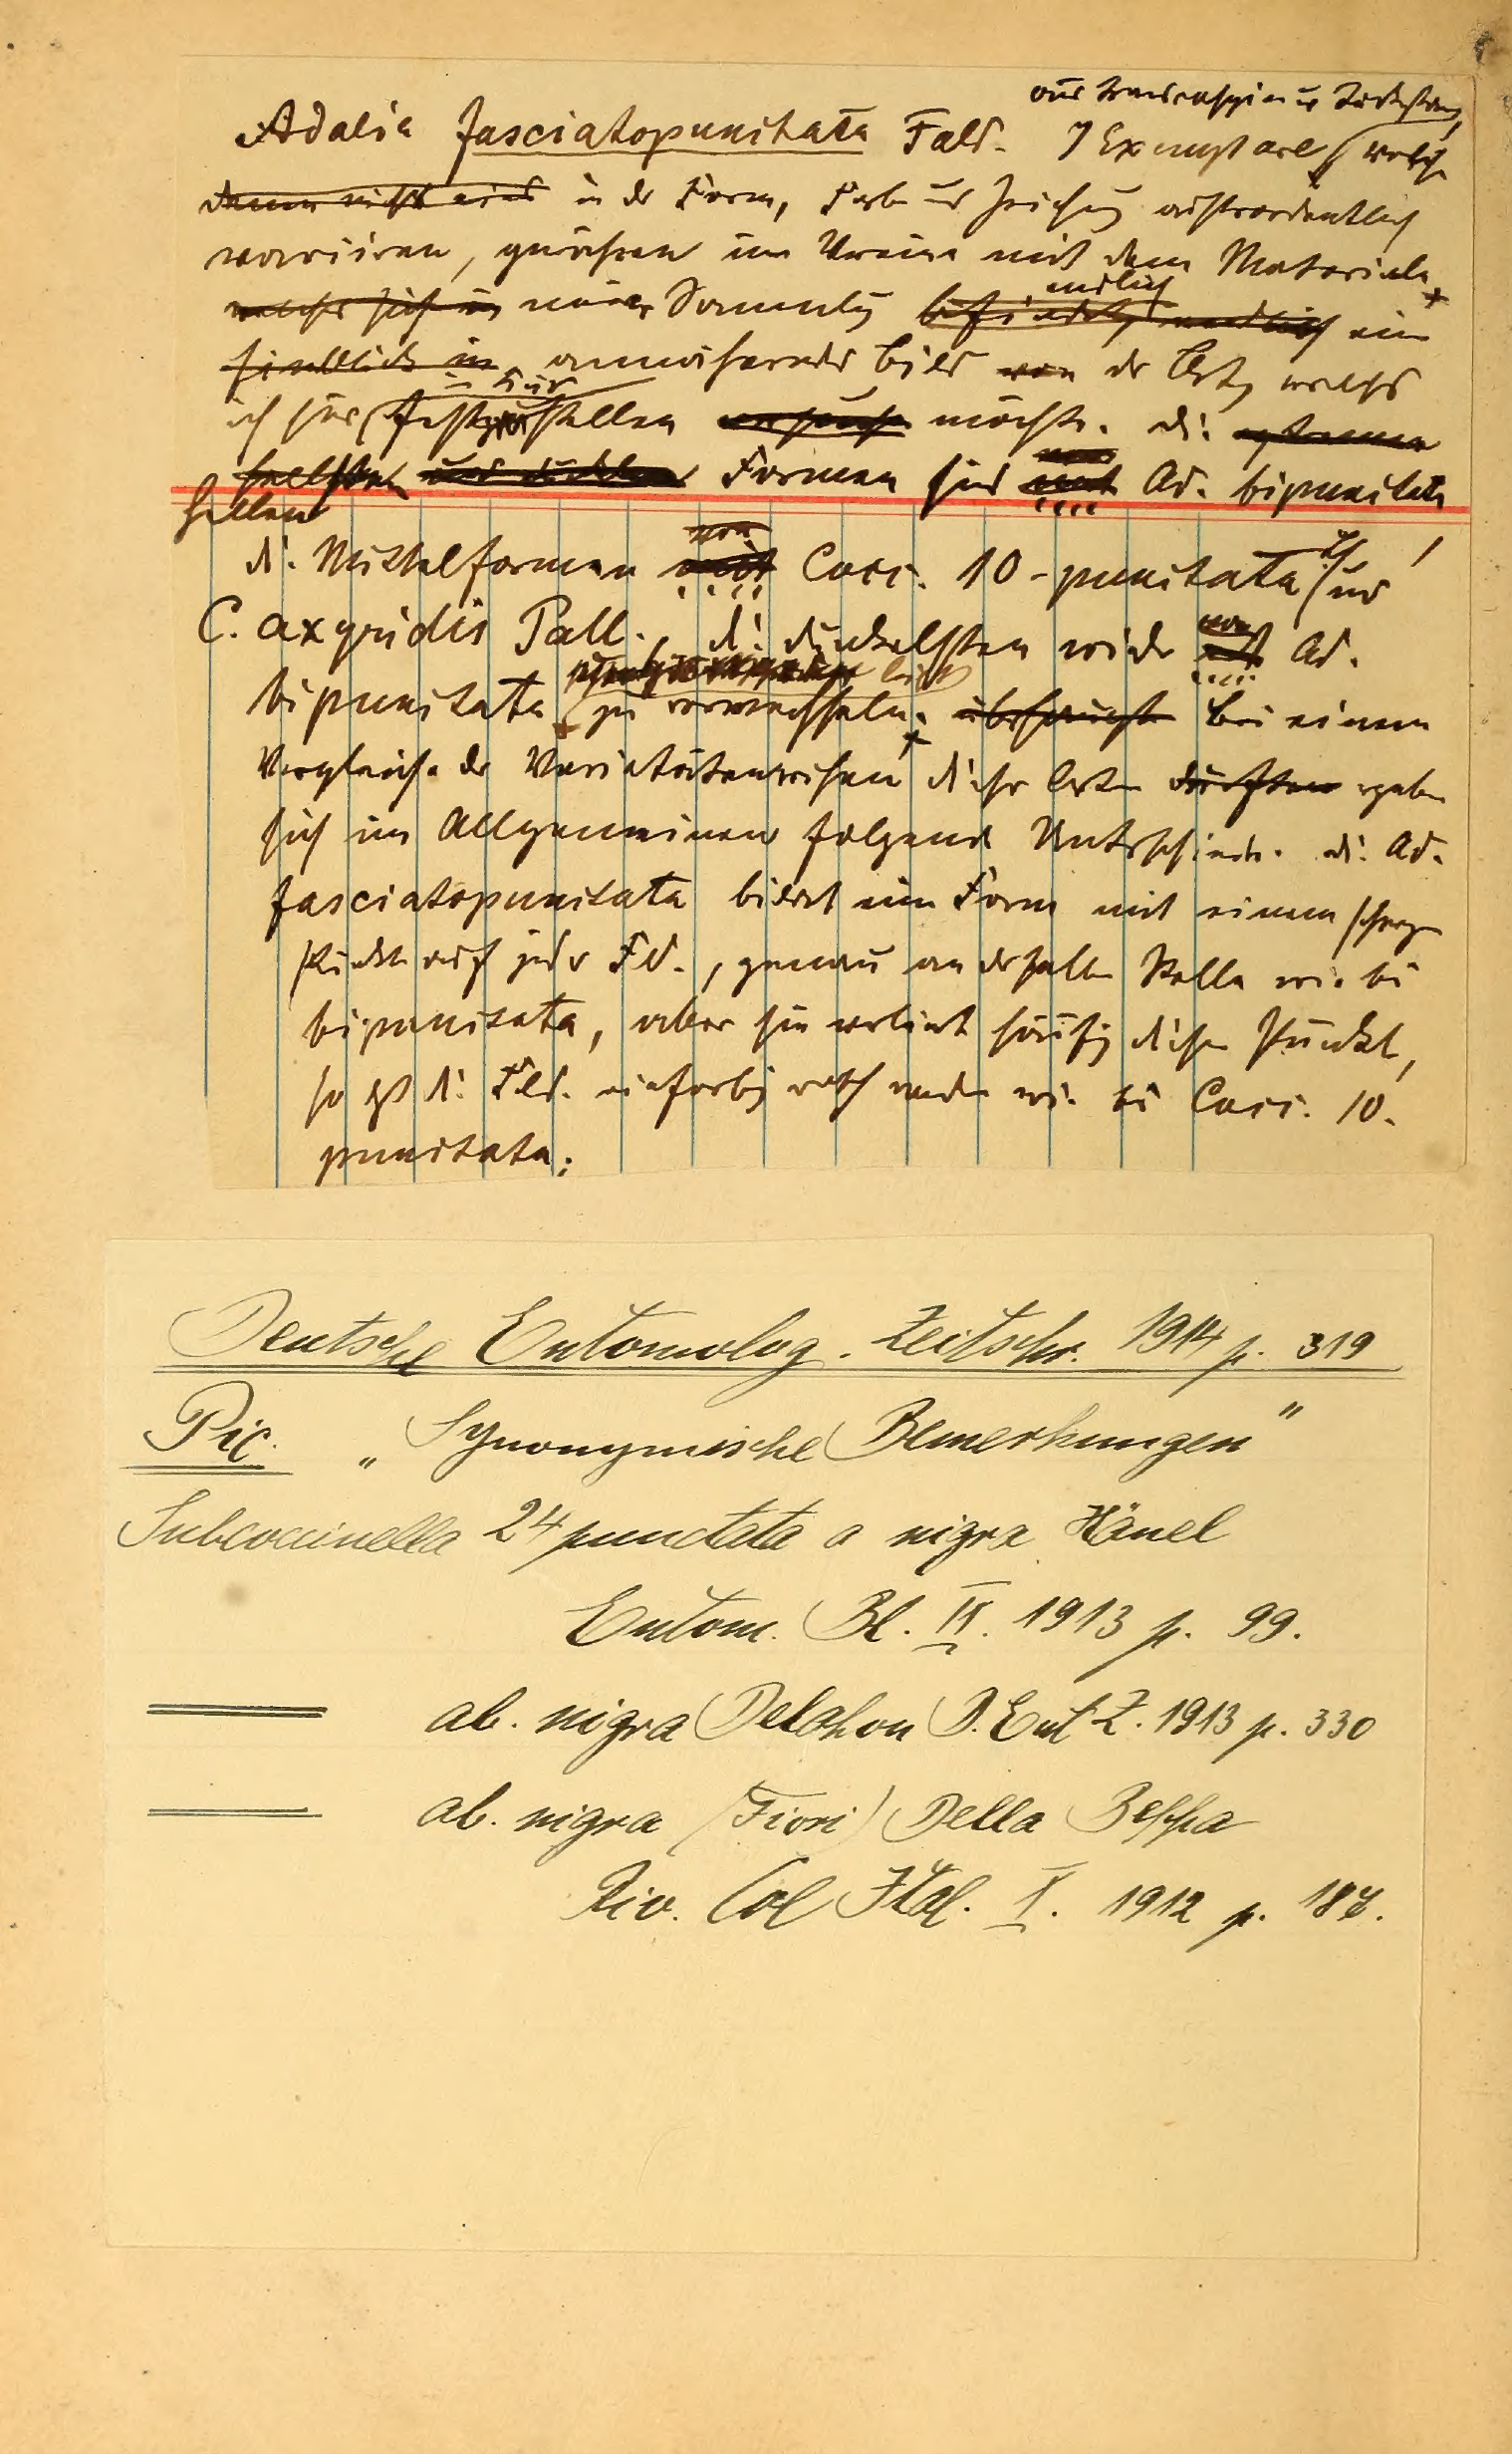 aus Transcaspien u Turkestan,
Adalia fasciatopunctata Fald. 7 Exemplare, welche
in der Form, Farbe und Zeichnung außerordentlich
variiren, gewähren im Vereine mit dem Materiale
meiner Sammlung endlich ein
annäherndes Bild der Art, welches
ich hier festzustellen möchte. die
hellen Formen sind mit Ad. bipunctata
die Mittelformen mit Cocc. 10-punctata und
C. axyridis Pall., die dunkelsten wieder mit Ad.
bipunctata leicht zu verwechseln. Bei einem
Vergleiche der Varietätenreihen dieser Arten ergeben
sich im Allgemeinen folgende Unterschiede. die Ad.
fasciatopunctata bildet eine Form mit einem schwarzen
Punkte auf jeder Fld., genau an derselben Stelle wie bei
bipunctata, aber sie verliert häufig diesen Punkt,
so daß die Fld. einfarbig roth werden wie bei Cocc. 10-
punctata;
Deutsche Entomolog. Zeitschr. 1914 p. 319
Pic. „Synonymische Bemerkungen"
Subcoccinella 24 punctata a nigra Hänel
Entom. Bl. IX. 1913 p. 99.
ab. nigra Delahon D. Ent Z. 1913 p. 330
ab. nigra (Fiori) Della Beffa
Riv. Col Ital. X. 1912 p.